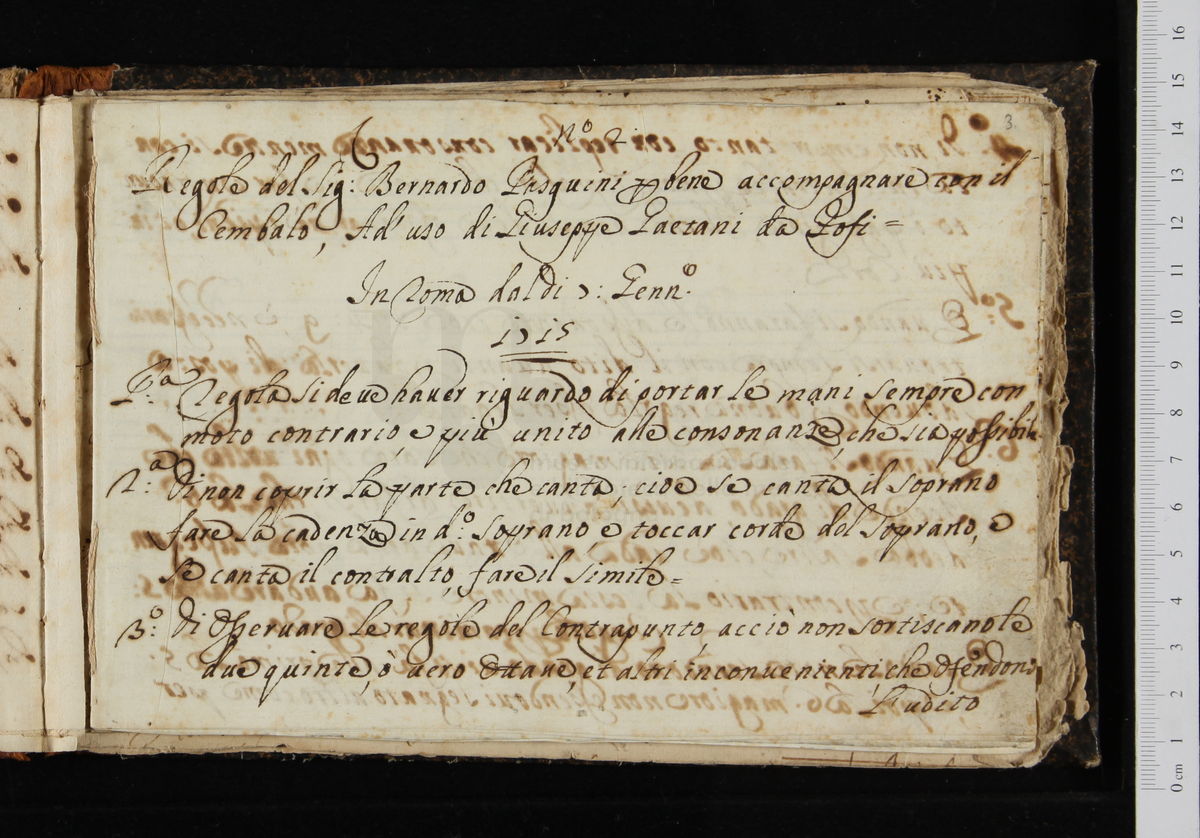 3.
N.º 2
Regole del Sig: Bernardo Pasquini p bene accompagnare con il
Cembalo, Ad' uso di Giuseppe Gaetani da Gofi =
In Roma dal di 7: Genn.º
1715
P.ª Regola si deue hauer riguardo di portar le mani sempre con
moto contrario, e più unito alle consonanze, che sia possibile
2.ª Di non coprir la parte che canta, cioe se canta il soprano
fare la cadenza in d.º soprano, e toccar corde del soprano, e
se canta il contralto fare il simile =
3.º Di osseruare le regole del Contrapunto, acciò non sortiscano le
due quinte, ò uero ottaue, et altri inconuenienti, che ofendono
l'udito
0 cm 1 2 3 4 5 6 7 8 9 10 11 12 13 14 15 16